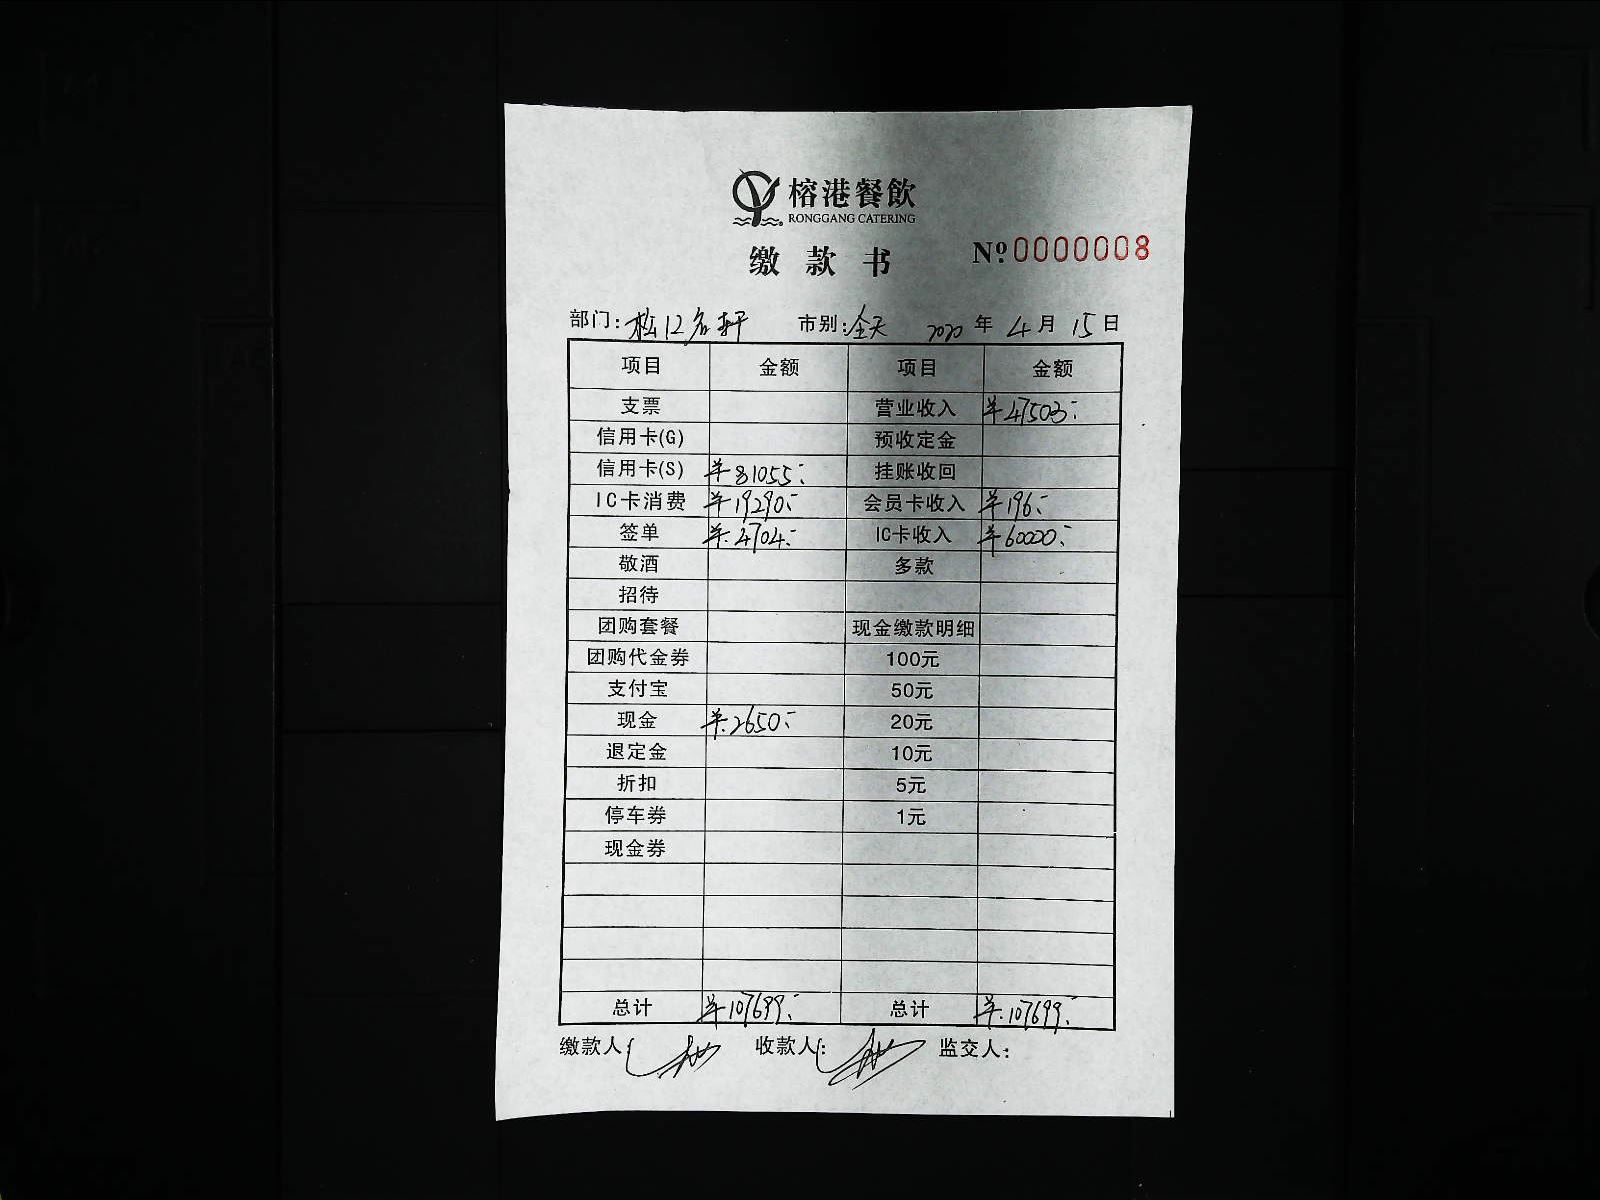 榕港餐飲
RONGGANG CATERING
缴款书 Nº 0000008
部门: 松12名轩 市别: 全天 2020年4月15日
项目 金额 项目 金额
支票 营业收入 ¥47503.-
信用卡(G) 预收定金
信用卡(S) ¥81055.- 挂账收回
IC卡消费 ¥19290.- 会员卡收入 ¥196.-
签单 ¥4704.- IC卡收入 ¥60000.-
敬酒 多款
招待
团购套餐 现金缴款明细
团购代金券 100元
支付宝 50元
现金 ¥2650.- 20元
退定金 10元
折扣 5元
停车券 1元
现金券
总计 ¥107699.- 总计 ¥107699.-
缴款人: 收款人: 监交人: